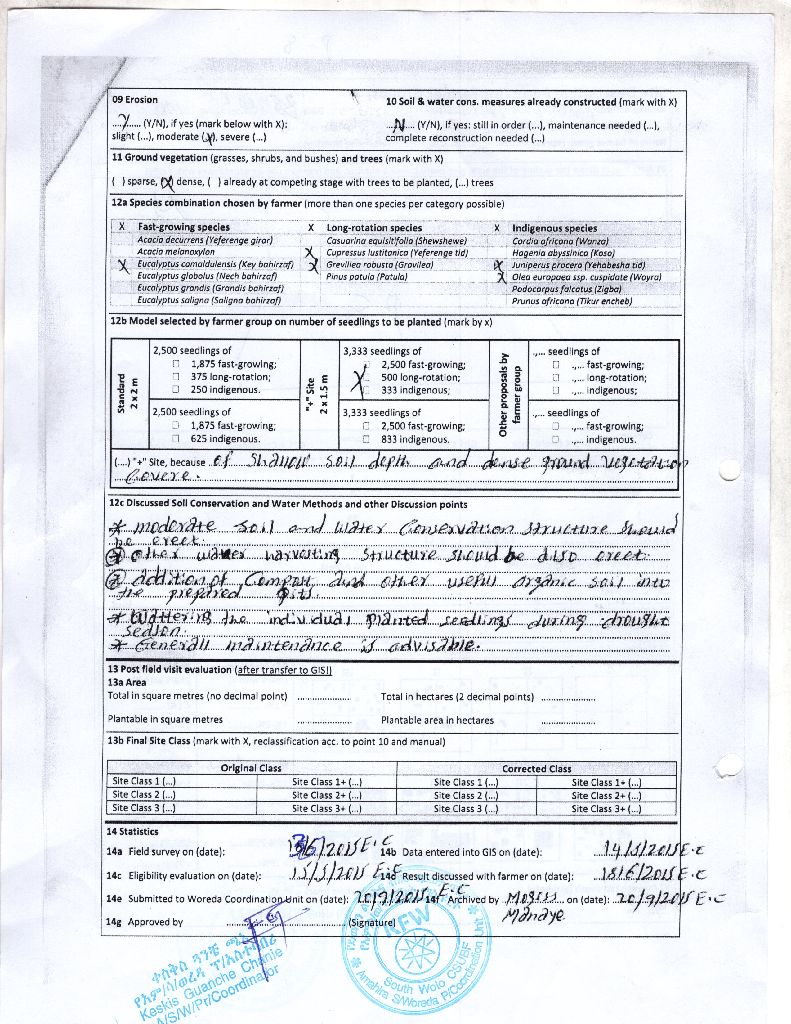 09 Erosion
10 Soil & water cons. measures already constructed (mark with X)
...Y... (Y/N), if yes (mark below with X):
...N.... (Y/N), if yes: still in order (...), maintenance needed (...),
slight (...), moderate (.X), severe (...)
complete reconstruction needed (...)
11 Ground vegetation (grasses, shrubs, and bushes) and trees (mark with X)
( ) sparse, (X) dense, ( ) already at competing stage with trees to be planted, (...) trees
12a Species combination chosen by farmer (more than one species per category possible)
X Fast-growing species X Long-rotation species X Indigenous species
Acacia decurrens (Yeferenge girar) Casuarina equisitifolia (Shewshewe) Cordia africana (Wanza)
Acacia melanoxylon X Cupressus lustitonica (Yeferenge tid) Hagenia abyssinica (Koso)
X Eucalyptus camaldulensis (Key bahirzaf) X Grevillea robusta (Gravilea) X Juniperus procera (Yehabesha tid)
Eucalyptus globulus (Nech bahirzaf) Pinus patula (Patula) X Olea europaea ssp. cuspidate (Woyra)
Eucalyptus grandis (Grandis bahirzaf) Podocarpus falcatus (Zigba)
Eucalyptus saligna (Saligna bahirzaf) Prunus africana (Tikur encheb)
12b Model selected by farmer group on number of seedlings to be planted (mark by x)
Standard
2 x 2 m
2,500 seedlings of
☐ 1,875 fast-growing;
☐ 375 long-rotation;
☐ 250 indigenous.
2,500 seedlings of
☐ 1,875 fast-growing;
☐ 625 indigenous.
"+" Site
2 x 1.5 m
3,333 seedlings of
☐ 2,500 fast-growing;
X 500 long-rotation;
☐ 333 indigenous;
3,333 seedlings of
☐ 2,500 fast-growing;
☐ 833 indigenous.
Other proposals by
farmer group
.,... seedlings of
☐ .,... fast-growing;
☐ .,... long-rotation;
☐ .,... indigenous;
.,... seedlings of
☐ .,... fast-growing;
☐ .,... indigenous.
(...) "+" Site, because of shallow soil depth and dense ground vegetation
Covere.
12c Discussed Soil Conservation and Water Methods and other Discussion points
* moderate soil and water Conservation structure should
be erect.
* other water harvasting structure should be also erect.
* addition of Compost and other usefull organic soil into
the prepared pits.
* Wattering the individual planted seedlings during drought
season.
* Generall maintenance is advisable.
13 Post field visit evaluation (after transfer to GIS!)
13a Area
Total in square metres (no decimal point) .................... Total in hectares (2 decimal points) ....................
Plantable in square metres .................... Plantable area in hectares ....................
13b Final Site Class (mark with X, reclassification acc. to point 10 and manual)
Original Class Corrected Class
Site Class 1 (...) Site Class 1+ (...) Site Class 1 (...) Site Class 1+ (...)
Site Class 2 (...) Site Class 2+ (...) Site Class 2 (...) Site Class 2+ (...)
Site Class 3 (...) Site Class 3+ (...) Site Class 3 (...) Site Class 3+ (...)
14 Statistics
14a Field survey on (date): /6/2015 E.C 14b Data entered into GIS on (date): 14/5/2015 E.C
14c Eligibility evaluation on (date): 15/5/2015 E.C 14d Result discussed with farmer on (date): 18/6/2015 E.C
14e Submitted to Woreda Coordination Unit on (date): 20/9/2015 E.C 14f Archived by Mogess on (date): 20/9/2015 E.C
Manaye
14g Approved by .................... (Signature)
Kaskis Guanche Chanie
A/S/W/Pr/Coordinator
KFW
South Wolo CSUBF
Amahira S/Woreda P/Coordination Unit